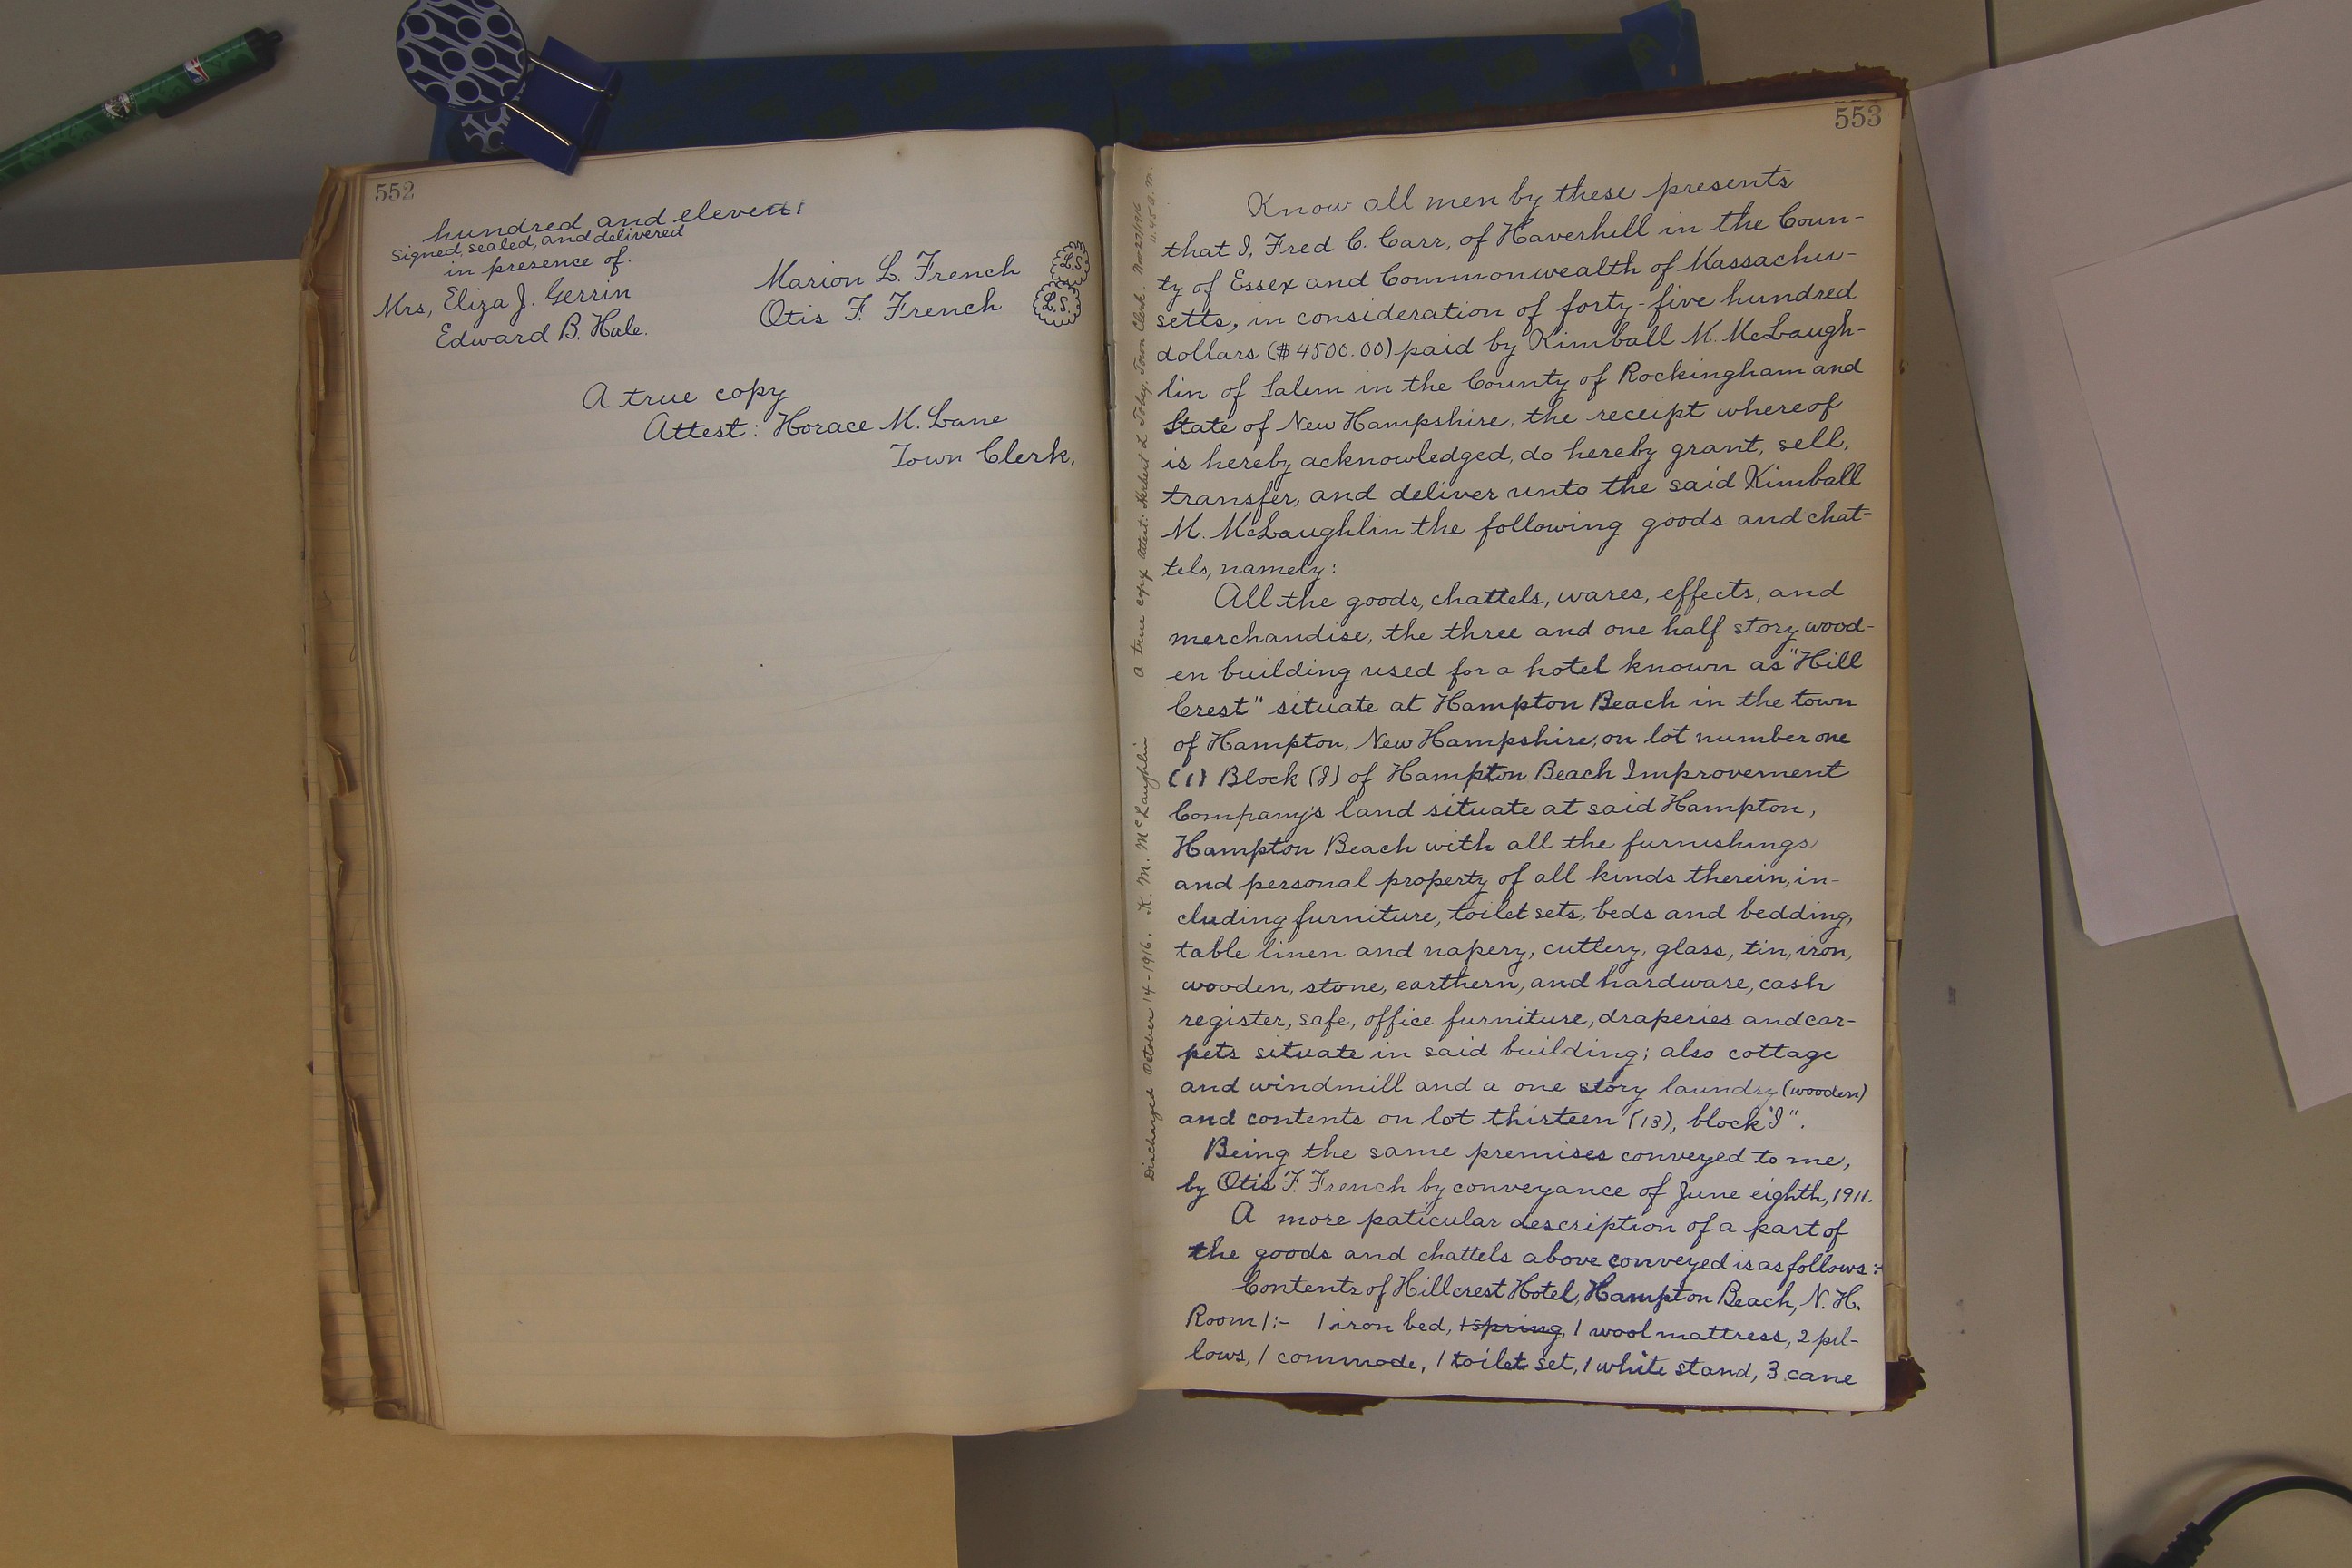 552
hundred and eleven.
Signed, sealed, and delivered
in presence of.
Mrs, Eliza J. Gerrin
Edward B. Hale.
Marion L. French L.S.
Otis F. French L.S.
A true copy
Attest: Horace M. Lane
Town Clerk.
553
Discharged October 14-1916. K. M. McLaughlin
A true copy Attest: Herbert L Tobey, Town Clerk. Nov 27/1916
11.45 a.m.
Know all men by these presents
that I, Fred C. Carr, of Haverhill in the Coun-
ty of Essex and Commonwealth of Massachu-
setts, in consideration of forty-five hundred
dollars ($4500.00) paid by Kimball M. McLaugh-
lin of Salem in the County of Rockingham and
State of New Hampshire, the receipt whereof
is hereby acknowledged, do hereby grant, sell,
transfer, and deliver unto the said Kimball
M. McLaughlin the following goods and chat-
tels, namely:
All the goods, chattels, wares, effects, and
merchandise, the three and one half story wood-
en building used for a hotel known as "Hill
Crest" situate at Hampton Beach in the town
of Hampton, New Hampshire, on lot number one
(1) Block (I) of Hampton Beach Improvement
Company's land situate at said Hampton,
Hampton Beach with all the furnishings
and personal property of all kinds therein, in-
cluding furniture, toilet sets, beds and bedding,
table linen and napery, cutlery, glass, tin, iron,
wooden, stone, earthern, and hardware, cash
register, safe, office furniture, draperies and car-
pets situate in said building; also cottage
and windmill and a one story laundry (wooden)
and contents on lot thirteen (13), block "I".
Being the same premises conveyed to me,
by Otis F. French by conveyance of June eighth, 1911.
A more paticular description of a part of
the goods and chattels above conveyed is as follows:-
Contents of Hillcrest Hotel, Hampton Beach, N. H.
Room 1:- 1 iron bed, 1 spring, 1 wool mattress, 2 pil-
lows, 1 commode, 1 toilet set, 1 white stand, 3 cane